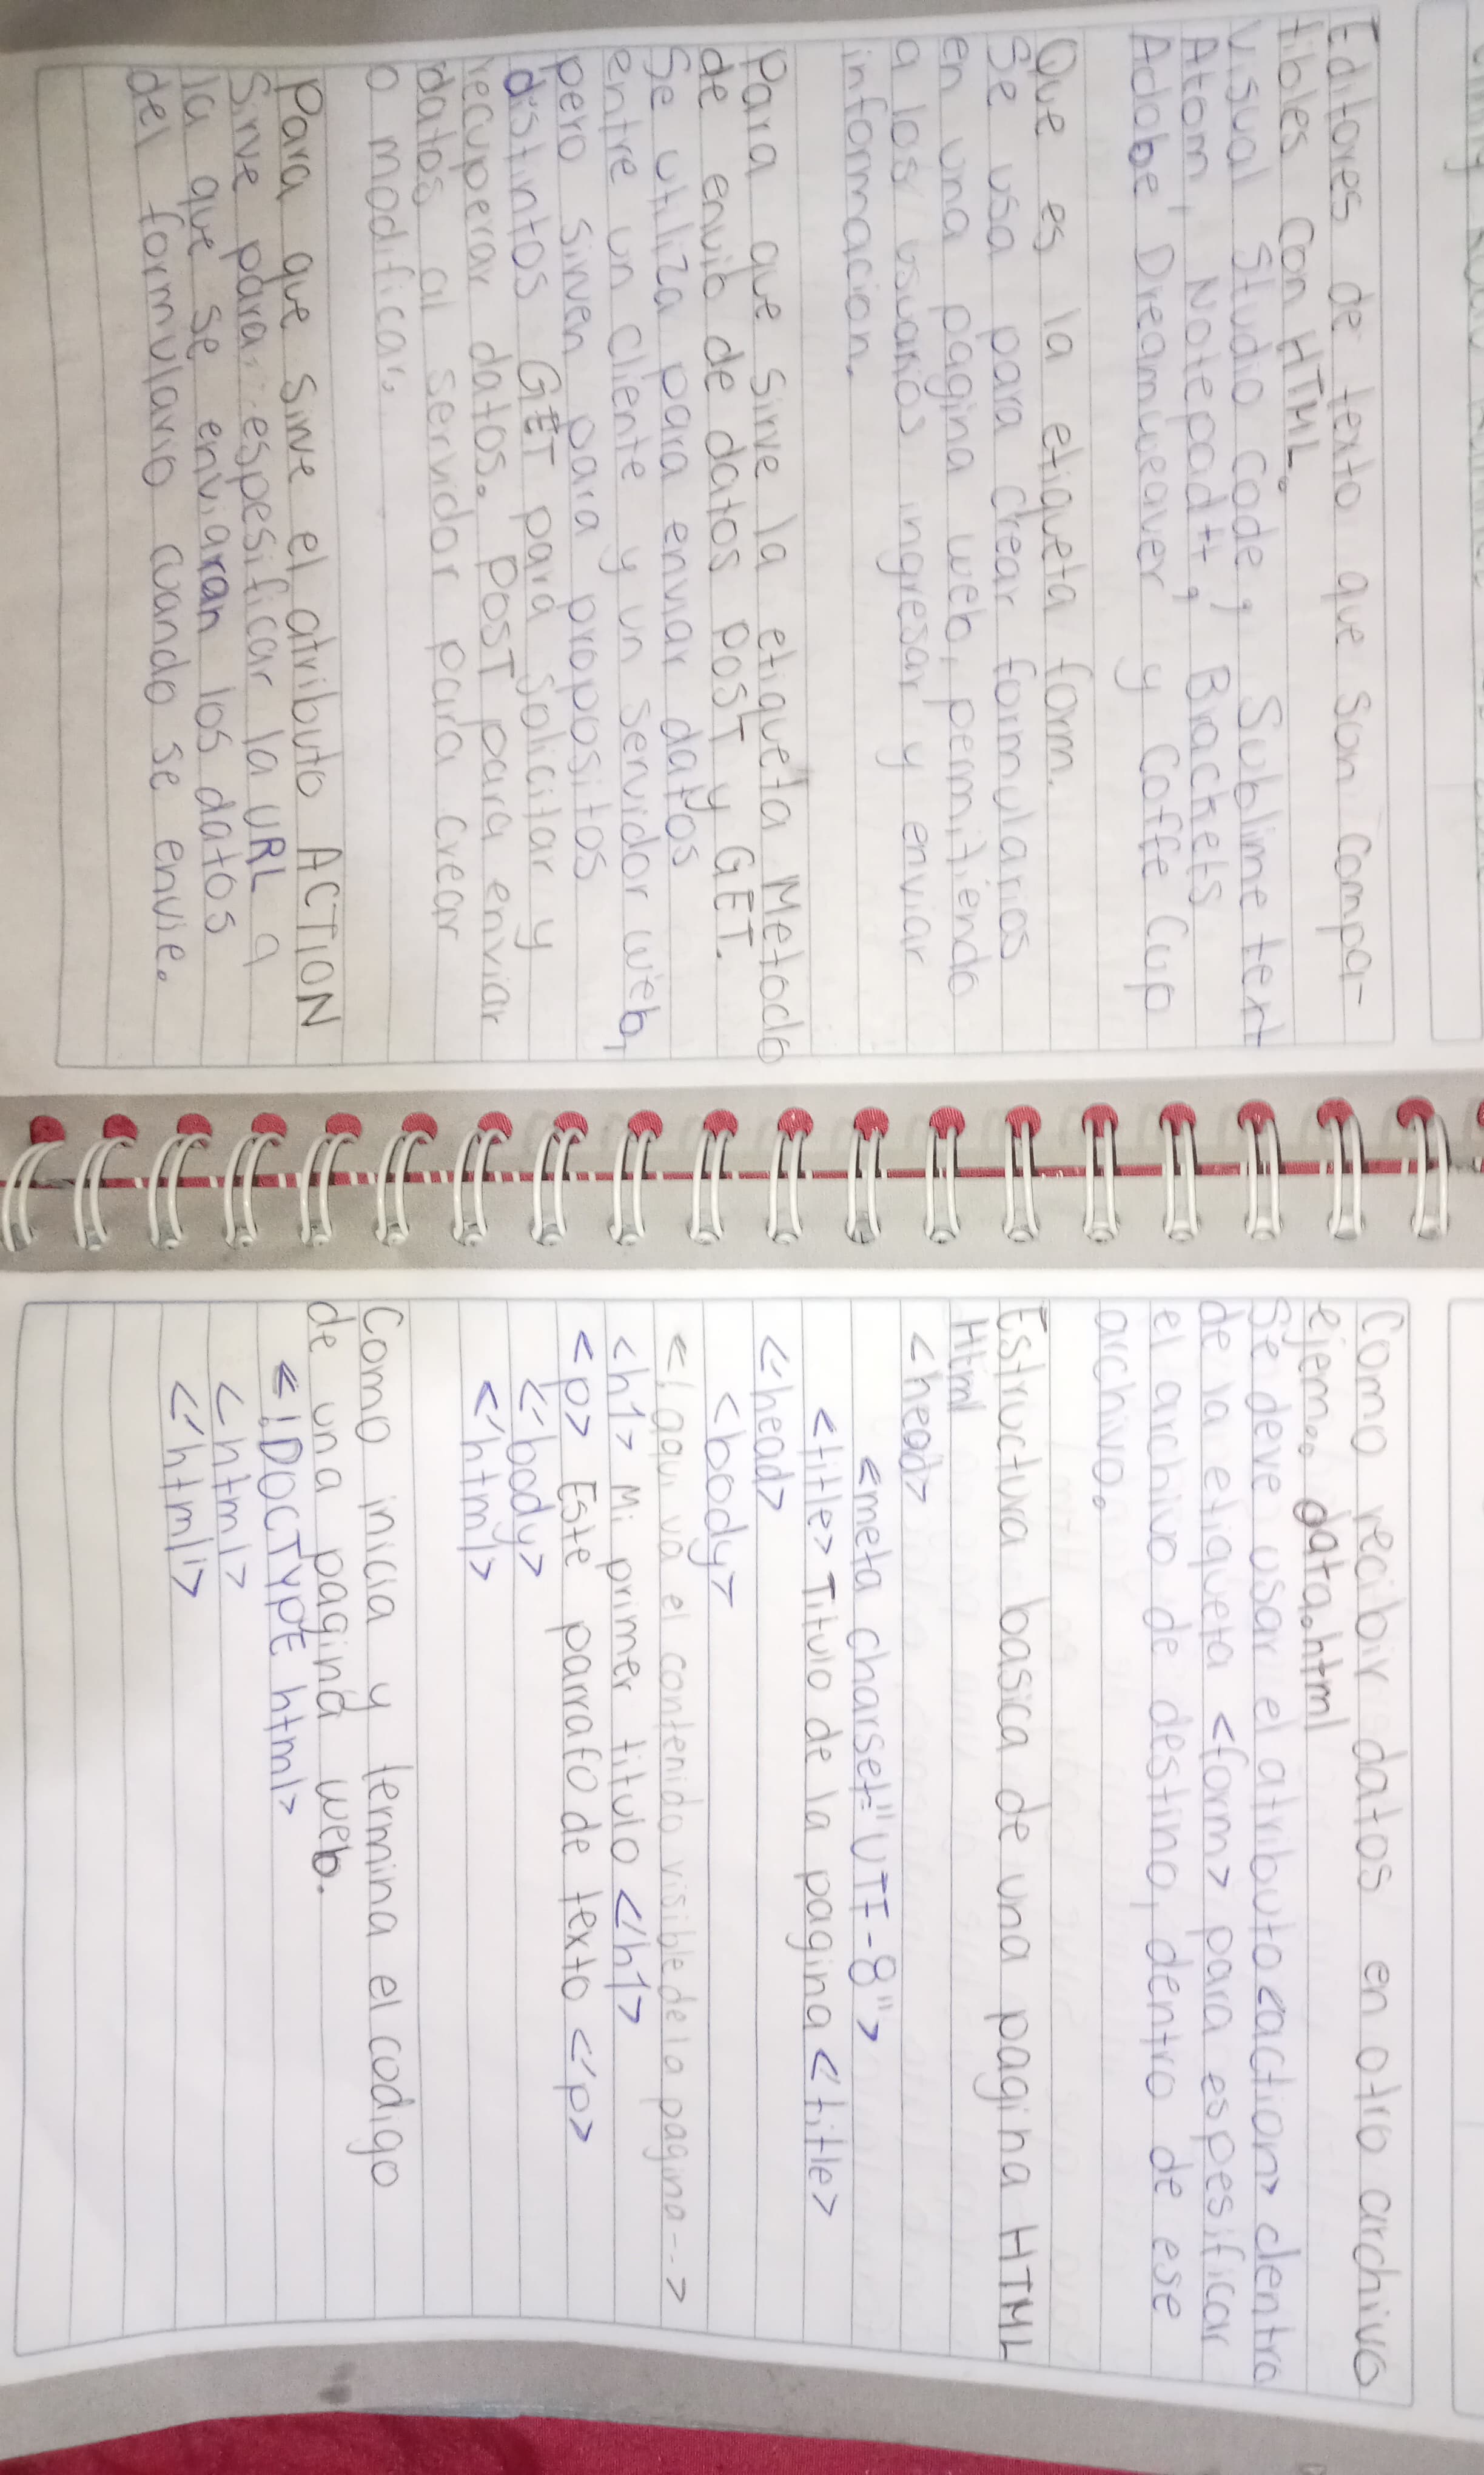 Editores de texto que son compa-
tibles con HTML.
Visual Studio Code, Sublime text
Atom, Notepad++, Brackets
Adobe Dreamweaver y Coffe Cup
Que es la etiqueta form.
Se usa para crear formularios
en una pagina web, permitiendo
a los usuarios ingresar y enviar
informacion.
Para que sirve la etiqueta Metodo
de envio de datos POST y GET.
Se utiliza para enviar datos
entre un cliente y un servidor web,
pero sirven para propositos
distintos GET para solicitar y
recuperar datos. POST para enviar
datos al servidor para crear
o modificar.
Para que sirve el atributo ACTION
Sirve para espesificar la URL a
la que se enviaran los datos
del formulario cuando se envie.
Como recibir datos en otro archivo
ejem. data.html
Se deve usar el atributo <action> dentro
de la etiqueta <form> para espesificar
el archivo de destino, dentro de ese
archivo.
Estructura basica de una pagina HTML
Html
<head>
<meta charset="UTF-8">
<title> Titulo de la pagina </title>
</head>
<body>
<! aqui va el contenido visible de la pagina -->
<h1> Mi primer titulo </h1>
<p> Este parrafo de texto </p>
</body>
</html>
Como inicia y termina el codigo
de una pagina web.
<!DOCTYPE html>
<html>
</html>